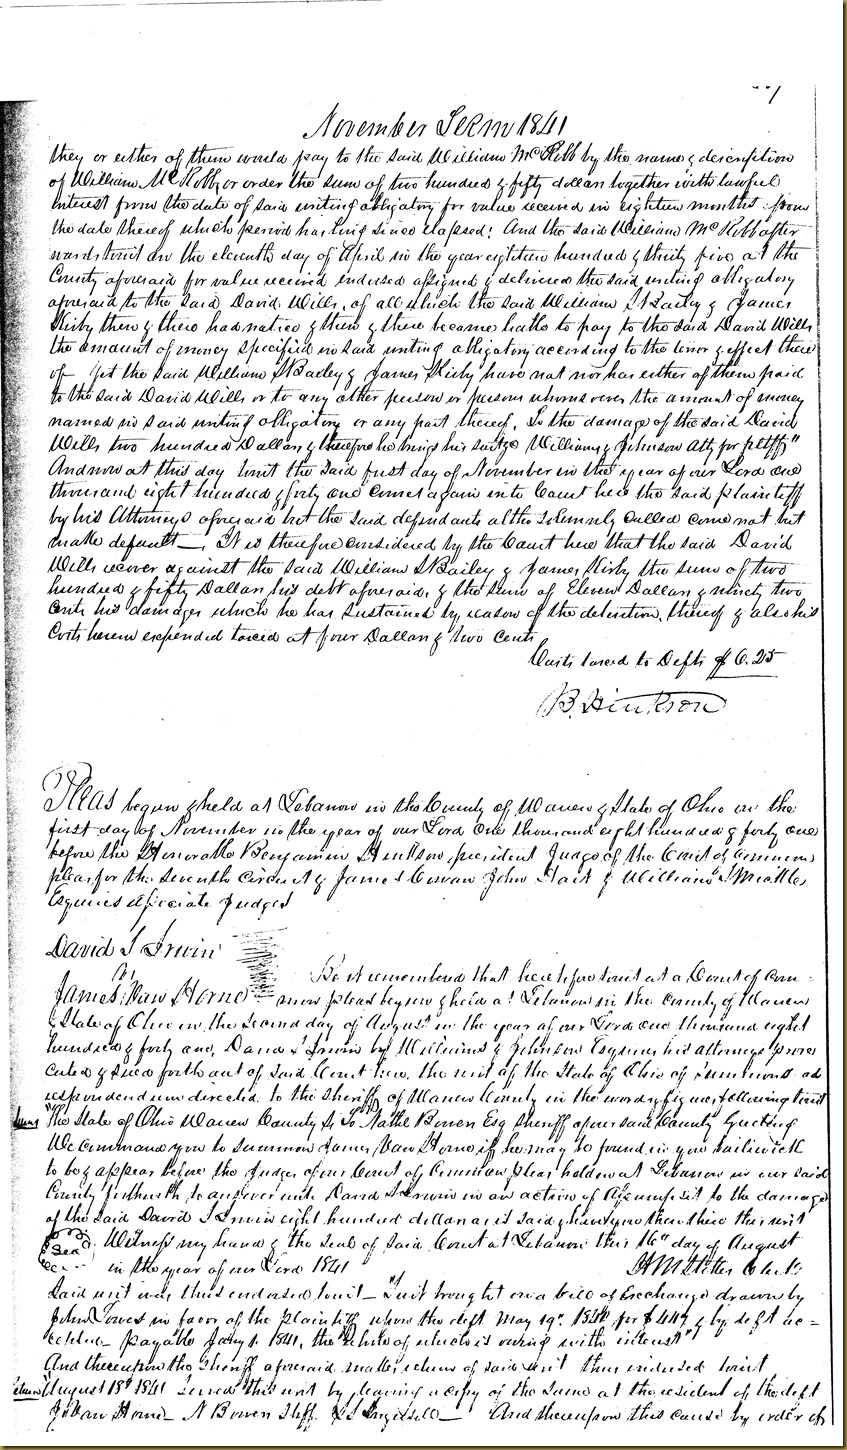 November Term 1841
they or either of them would pay to the said William McKibb by the name & description
of William McKobb, or order the sum of two hundred & fifty dollars together with lawful
interest from the date of said writing obligatory for value received in eighteen months from
the date thereof which period has long since elapsed! And the said William McKobb after
wards towit on the eleventh day of April in the year eighteen hundred & thirty five at the
County aforesaid for value received indorsed assigned & delivered the said writing obligatory
aforesaid to the said David Wills, of all which the said William S Bailey & James
Kirby then & there had notice & then & there became liable to pay to the said David Wills
the amount of money specified in said writing obligatory according to the tenor & effect there
of - Yet the said William S Bailey & James Kirby have not nor has either of them paid
to the said David Wills or to any other person or persons whomsoever the amount of money
named in said writing obligatory or any part thereof, To the damage of the said David
Wills two hundred Dollars & therefore he brings his suit &c Williams & Johnson Atty for pltff"
And now at this day towit the said first day of November in the year of our Lord one
thousand eight hundred & forty one comes again into Court here the said plaintiff
by his Attorneys aforesaid but the said defendants altho solemnly called come not but
make default — It is therefore considered by the Court here that the said David
Wills recover against the said William S Bailey & James Kirby the sum of two
hundred & fifty Dollars his debt aforesaid, & the sum of Eleven Dollars & ninety two
Cents his damages which he has sustained by reason of the detention thereof & also his
Costs herein expended taxed at four Dollars & two Cents
Costs taxed to Defts $6.25
B. Hinkson
Pleas begun & held at Lebanon in the County of Warren & State of Ohio on the
first day of November in the year of our Lord one thousand eight hundred & forty one
before the Honorable Benjamin Hinkson, president Judge of the Court of Common
pleas for the seventh Circuit & James Cowan John Hart & William
Esquires Associate Judges
David S Irwin
vs
James Van Horne
Be it remembered that heretofore towit at a Court of Com-
mon pleas begun & held at Lebanon in the County of Warren
& State of Ohio on the second day of August in the year of our Lord one thousand eight
hundred & forty one, David S Irwin by Williams & Johnson Esquires his attorneys prose
cuted & sued forth out of said Court here the writ of the State of Ohio of Summons ad
respondendum directed to the Sheriff of Warren County in the words & figures following towit
"The State of Ohio Warren County Ss To Nathl Bowen Esq Sheriff of our said County Greeting
We Command you to summon James Van Horne if he may be found in your bailiwick
to be & appear before the Judges of our Court of Common pleas holden at Lebanon in our said
County forthwith to answer unto David S Irwin in an action of Assumpsit to the damage
of the said David S Irwin eight hundred dollars as is said & have you then there this writ
Seal
Witness my hand & the seal of said Court at Lebanon this 16th day of August
in the year of our Lord 1841
Clerk"
Said writ was thus endorsed, towit — "Suit brought on a bill of Exchange drawn by
John Toves in favor of the plaintiff upon the deft May 19th 1840 for $447 & by deft ac=
cepted — payable Jany 1. 1841, the whole of which is owing with interest"
And thereupon the Sheriff aforesaid makes return of said writ thus indorsed towit
August 18th 1841 Served this writ by leaving a copy of the same at the resident of the deft
J. Van Horne — N Bowen Shff — And thereupon this cause by order of